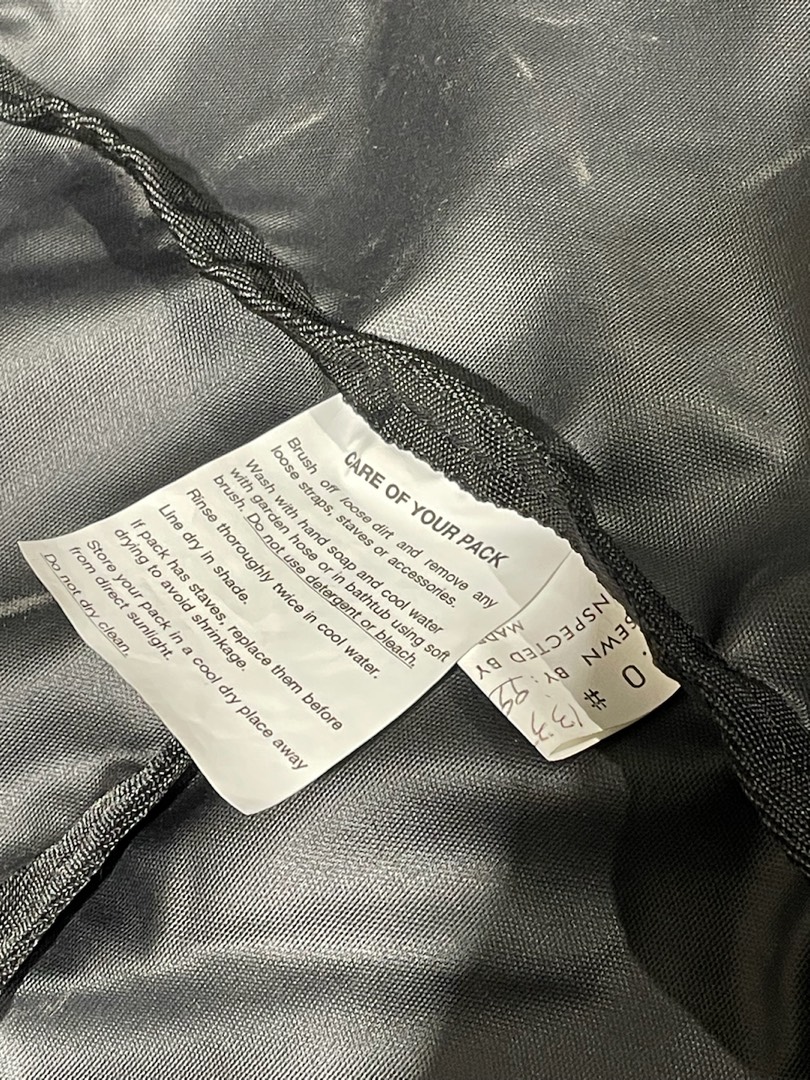 CARE OF YOUR PACK
Brush off loose dirt and remove any
loose straps, staves or accessories.
Wash with hand soap and cool water
with garden hose or in bathtub using soft
brush. Do not use detergent or bleach.
Rinse thoroughly twice in cool water.
Line dry in shade.
If pack has staves, replace them before
drying to avoid shrinkage.
Store your pack in a cool dry place away
from direct sunlight.
Do not dry clean.
O #
SEWN BY:
NSPECTED BY
MAD